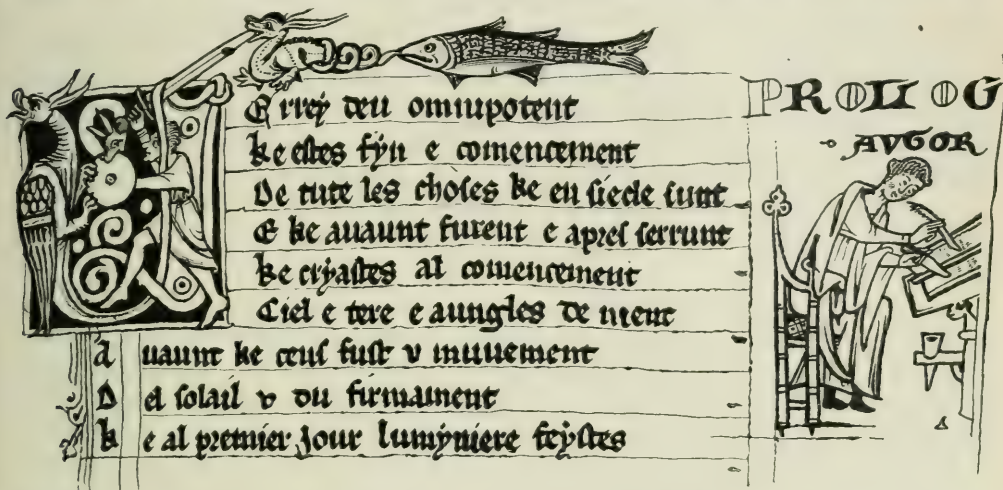 VE rrey deu omnipotent
ke estes fyn e comencement
De tute les choses ke en siecle sunt
E ke auaunt furent e apres serrunt
ke cryastes al comencement
Ciel e tere e aungles de nient
A uaunt ke tens fust v muuement
D el solail v du firmament
k e al premier Jour lumyniere feystes
PROLOG
AVGOR